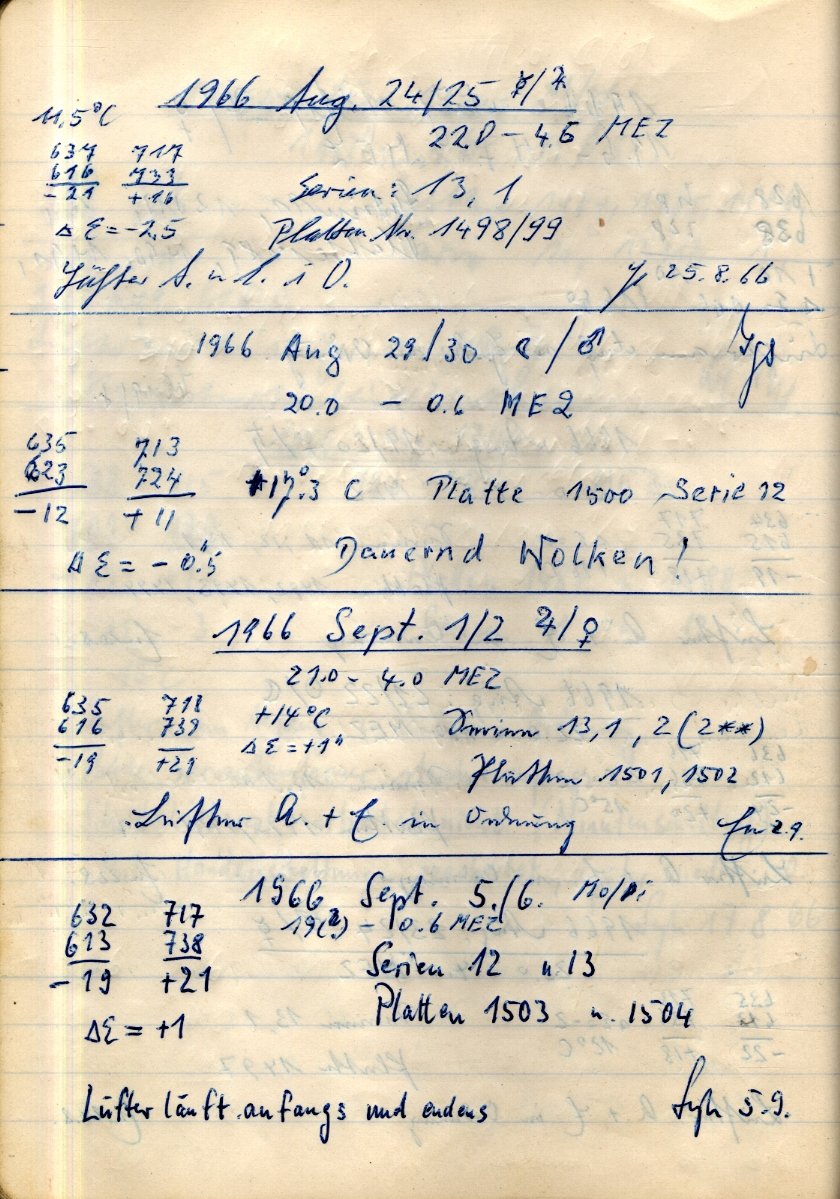 1966 Aug. 24/25 ☿/♃
11,5°C
22.0 – 4.6 MEZ
637 717
616 733
-21 +16
Serien: 13, 1
Δ ε = -2,5
Platten Nr. 1498/99
Lüfter A. u. E. i O.
25.8.66
1966 Aug 29/30 ☾/♂
20.0 – 0.6 MEZ
635 713
623 724
-12 +11
+17.°3 C Platte 1500 Serie 12
Δ ε = - 0."5
Dauernd Wolken!
1966 Sept. 1/2 ♃/♀
21.0 – 4.0 MEZ
635 718
616 739
-19 +21
+14°C
Δ ε = +1"
Serien 13, 1, 2 (2**)
Platten 1501, 1502
Lüfter A. + E. in Ordnung
2.9.
1966 Sept. 5./6. Mo/Di
19(?) – 0.6 MEZ
632 717
613 738
-19 +21
Serien 12 u 13
Platten 1503 u. 1504
Δε = +1
Lüfter läuft anfangs und endens
5.9.